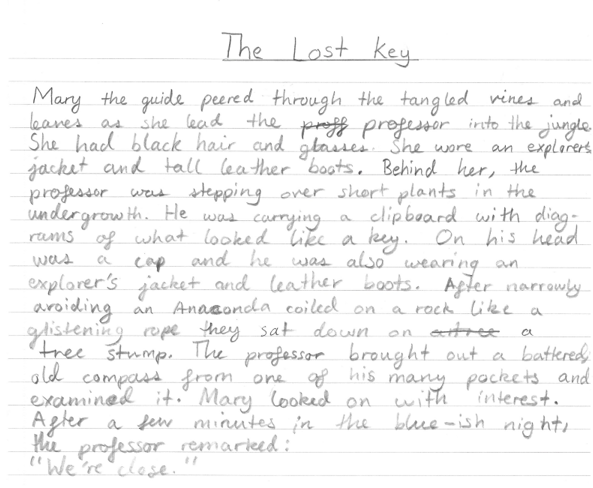 The Lost Key
Mary the guide peered through the tangled vines and
leaves as she lead the proff professor into the jungle.
She had black hair and glasses. She wore an explorers
jacket and tall leather boots. Behind her, the
professor was stepping over short plants in the
undergrowth. He was carrying a clipboard with diag-
rams of what looked like a key. On his head
was a cap and he was also wearing an
explorer's jacket and leather boots. After narrowly
avoiding an Anaconda coiled on a rock like a
glistening rope they sat down on a
tree stump. The professor brought out a battered,
old compass from one of his many pockets and
examined it. Mary looked on with interest.
After a few minutes in the blue-ish night,
the professor remarked:
"We're close."